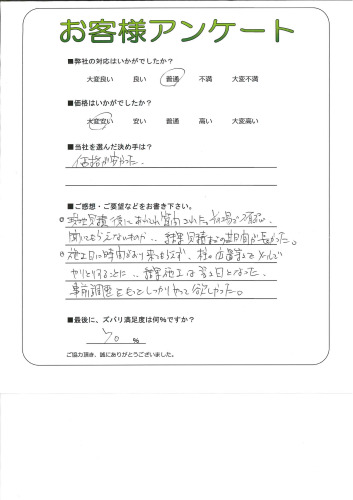 お客様アンケート
■弊社の対応はいかがでしたか?
大変良い 良い 普通 不満 大変不満
■価格はいかがでしたか?
大変安い 安い 普通 高い 大変高い
■当社を選んだ決め手は?
価格が安かった.
■ご感想・ご要望などをお書き下さい。
現地見積後にあれこれ質問された。
聞いてもらえないものか.. 結果見積までの期間が長かった。
施工日に時間どおり来てもらえず、柱の位置等をメールで
やりとりすることに.. 結果施工は翌日となった。
事前調整をもっとしっかりやって欲しかった。
■最後に、ズバリ満足度は何%ですか?
70 %
ご協力頂き、誠にありがとうございました。